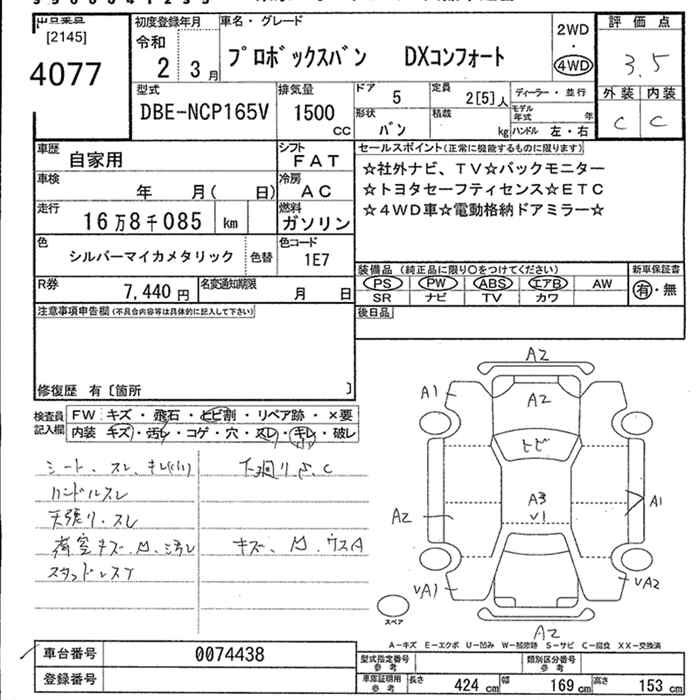 [2145]
4077
初度登録年月
令和
2 3月
車名・グレード
プロボックスバン DXコンフォート
2WD
・
4WD
評価点
3.5
外装 内装
C C
型式
DBE-NCP165V
排気量
1500
CC
ドア
5
定員
2[5]人
ディーラー・並行
形状
バン
積載
kg
モデル年式 年
ハンドル 左・右
車歴
自家用
シフト
FAT
車検
年 月( 日)
冷房
AC
走行
16万8千085 km
燃料
ガソリン
色
シルバーマイカメタリック
色替
色コード
1E7
R券
7,440円
名変通知期限
月 日
セールスポイント(正常に機能するものに限ります)
☆社外ナビ、TV☆バックモニター
☆トヨタセーフティセンス☆ETC
☆4WD車☆電動格納ドアミラー☆
装備品 (純正品に限り○をつけてください)
新車保証書
PS PW ABS エアB AW
有・無
SR ナビ TV カワ
後日品
注意事項申告欄(不具合内容等は具体的に記入して下さい)
修復歴 有[箇所 ]
検査員記入欄
FW キズ・飛石・ヒビ割・リペア跡・×要
内装 キズ・汚レ・コゲ・穴・スレ・キレ・破レ
シート、スレ、キレ(小)
ハンドルスレ
天張り、スレ
荷室キズ、凹、汚レ
下廻りS、C
キズ、凹、ウスA
A2
A1
A2
ヒビ
A3
V1
A1
A2
VA1
VA2
A2
スペア
A-キズ E-エクボ U-凹み W-補修跡 S-サビ C-腐食 XX-交換済
車台番号
0074438
登録番号
型式指定番号
参考
類別区分番号
参考
車庫証明用
参考
長さ 424 cm 幅 169 cm 高さ 153 cm